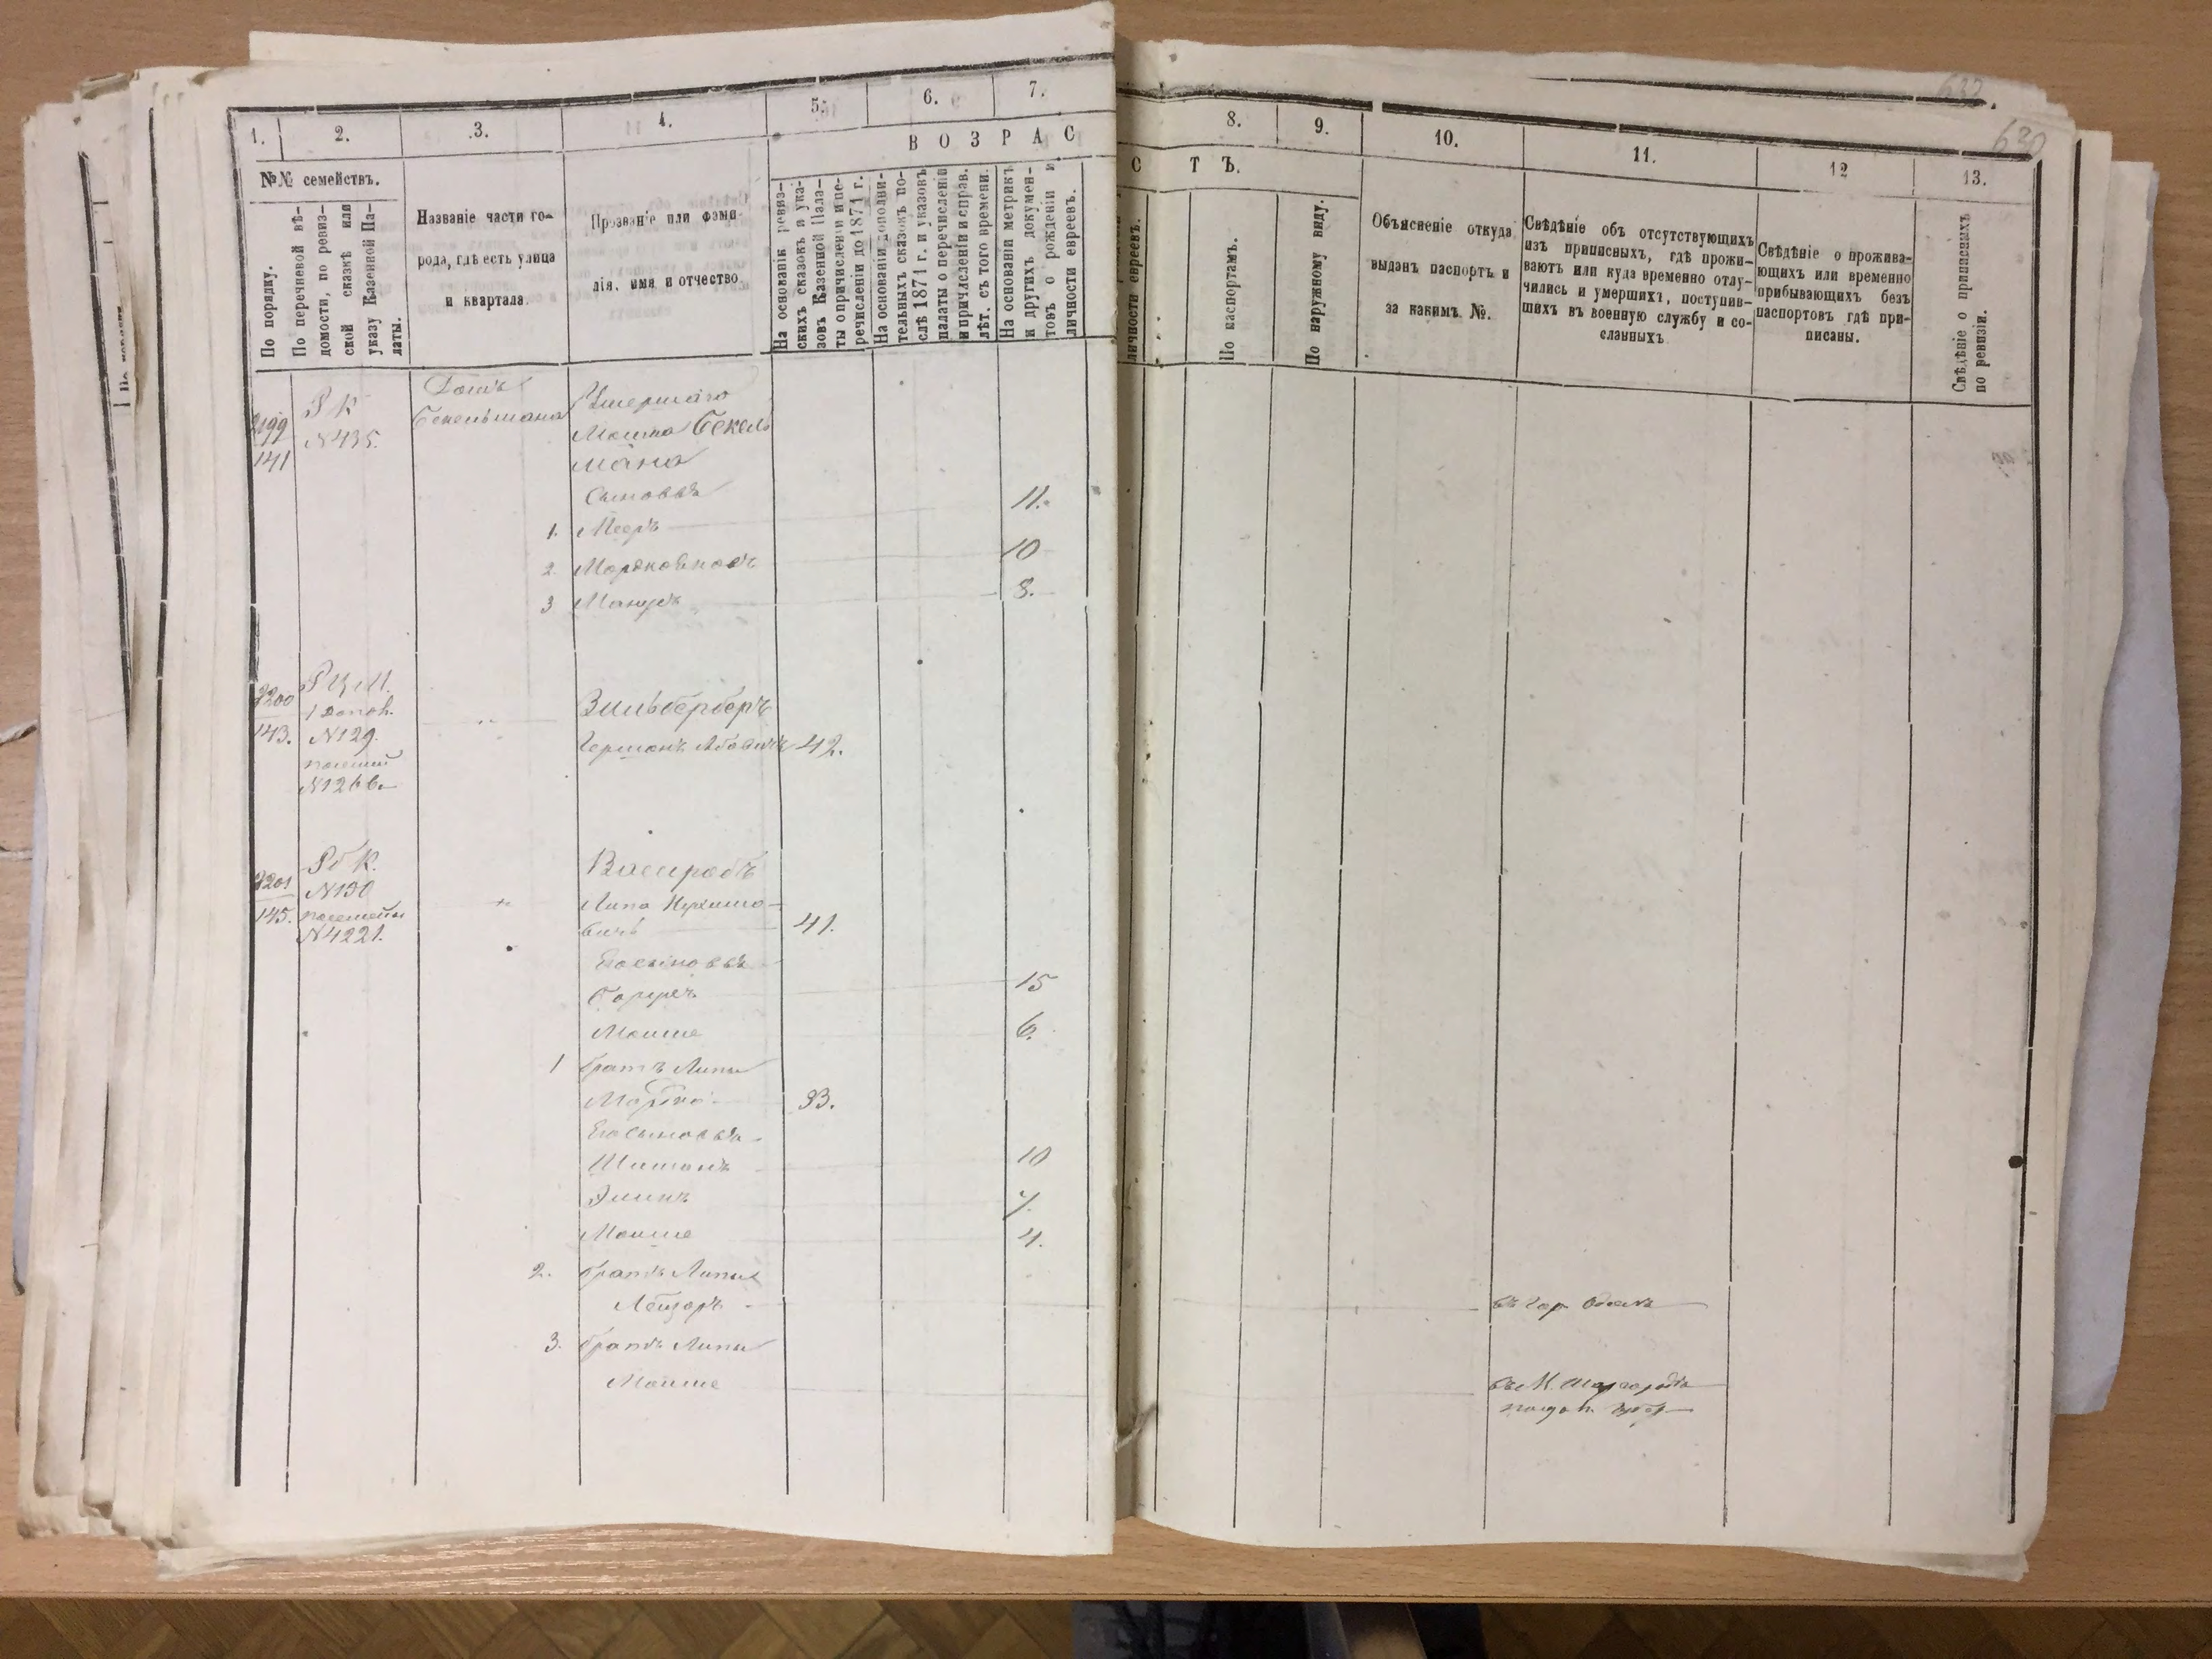 632.
630
1. 2. 3. 4. 5. 6. 7.
8. 9. 10. 11. 12 13.
В О З Р А С
С Т Ъ.
№№ семействъ.
По порядку.
По перечневой вѣ-
домости, по ревиз-
ской сказкѣ или
указу Казенной Па-
латы.
Названіе части го-
рода, гдѣ есть улица
и квартала.
Прозваніе или фами-
лія, имя и отчество.
На основаніи ревиз-
скихъ сказокъ и ука-
зовъ Казенной Пала-
ты о причисленіи и пе-
речисленіи до 1871 г.
На основаніи дополни-
тельныхъ сказокъ по-
слѣ 1871 г. и указовъ
палаты о перечисленіи
и причисленіи и справ.
лѣт. съ того времени.
На основаніи метрикъ
и другихъ докумен-
товъ о рожденіи и
личности евреевъ.
личности евреевъ.
По паспортамъ.
По наружному виду.
Объясненіе откуда
выданъ паспортъ и
за какимъ №.
Свѣдѣніе объ отсутствующихъ
изъ приписныхъ, гдѣ прожи-
ваютъ или куда временно отлу-
чились и умершихъ, поступив-
шихъ въ военную службу и со-
сланныхъ
Свѣдѣніе о прожива-
ющихъ или временно
прибывающихъ безъ
паспортовъ гдѣ при-
писаны.
Свѣдѣніе о приписныхъ
по ревизіи.
2199
141
Р К
N 435.
Домъ
Бекельмана
Умершаго
Мошка Бекель
мана
Сыновья
1. Мееръ 11.
2. 10
3 8.
3200
143.
N129.
N1266.
Зильберберъ
Германъ 42.
3201
145.
N130
N4221.
Липа
вичъ 41.
Его сыновья
15
Моише 6.
1 братъ Липы
33.
Его сыновья
10
7.
Моише 4.
2. братъ Липы
Лейзоръ въ гор. Одесѣ
3. братъ Липы
Моише въ М. Шаргородѣ